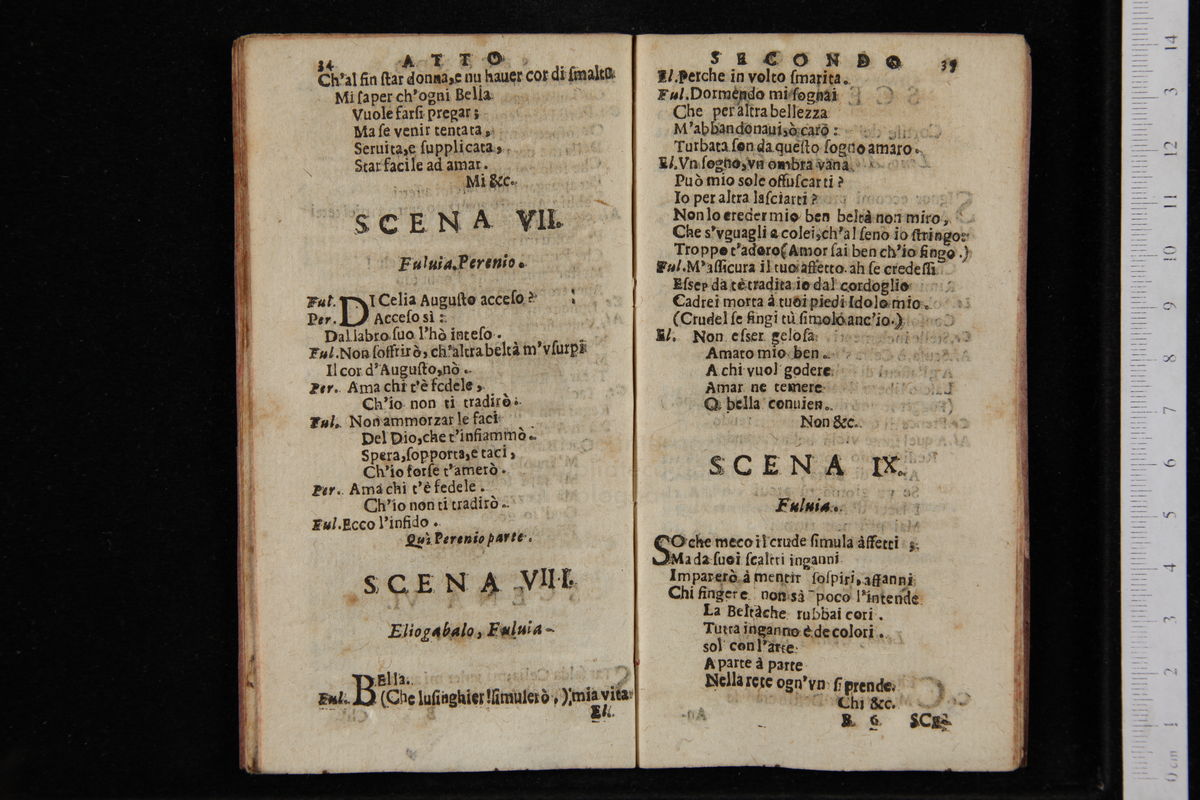 34 ATTO
Ch'al fin star donna, e nu hauer cor di smalto
Mi saper ch'ogni Bella
Vuole farsi pregar;
Ma se venir tentata,
Seruita, e supplicata,
Star facile ad amar.
Mi &c.
SCENA VII.
Fuluia. Perenio.
Ful. DI Celia Augusto acceso?
Per. Acceso sì:
Dal labro suo l'hò inteso.
Ful. Non soffrirò, ch'altra beltà m'vsurpi
Il cor d'Augusto, nò.
Per. Ama chi t'è fedele,
Ch'io non ti tradirò.
Ful. Non ammorzar le faci
Del Dio, che t'infiammò.
Spera, sopporta, e taci,
Ch'io forse t'amerò.
Per. Ama chi t'è fedele.
Ch'io non ti tradirò.
Ful. Ecco l'infido.
Quì Perenio parte.
SCENA VIII.
Eliogabalo, Fuluia.
BElla.
Ful. (Che lusinghier! simulerò,) mia vita
El.
SECONDO 35
El. Perche in volto smarita.
Ful. Dormendo mi sognai
Che per altra bellezza
M'abbandonaui, ò caro:
Turbata son da questo sogno amaro.
El. Vn sogno, vn ombra vana
Può mio sole offuscarti?
Io per altra lasciarti?
Non lo creder mio ben beltà non miro,
Che s'vguagli a colei, ch'al seno io stringo:
Troppo t'adoro (Amor sai ben ch'io fingo.)
Ful. M'assicura il tuo affetto. ah se credessi
Esser da tè tradita io dal cordoglio
Cadrei morta à tuoi piedi Idolo mio.
(Crudel se fingi tù simolo anc'io.)
El. Non esser gelosa
Amato mio ben.
A chi vuol godere
Amar ne temere
O bella conuien.
Non &c.
SCENA IX.
Fuluia.
SO che meco il crude simula affetti;
Ma da suoi scaltri inganni
Imparerò à mentir sospiri, affanni
Chi fingere non sà poco l'intende
La Beltà che rubba i cori.
Tutta inganno è de colori.
sol con l'arte
A parte à parte
Nella rete ogn'vn si prende.
Chi &c.
B 6 SCE-